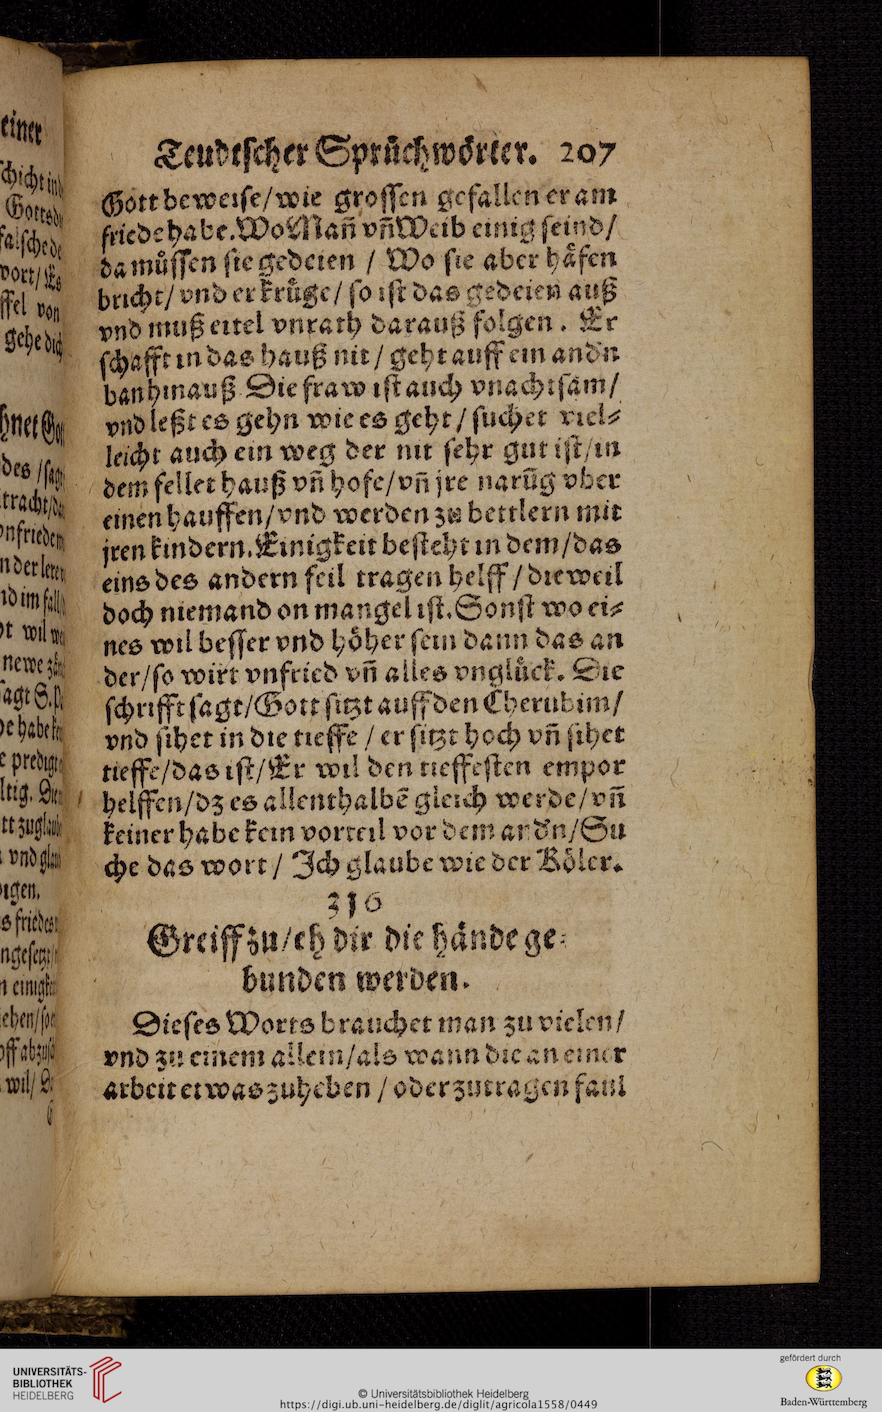 Teudtscher Sprůchwörter. 207
Gott beweise/wie grossen gefallen er am
friede habe. Wo Mañ vñ Weib einig seind/
da můssen sie gedeien / Wo sie aber håfen
bricht/ vnd er krůge/ so ist das gedeien auß
vnd muß eitel vnrath darauß folgen. Er
schafft in das hauß nit/ geht auff ein andn
ban hinauß. Die fraw ist auch vnachtsam/
vnd leßt es gehn wie es geht / suchet viel-
leicht auch ein weg der nit sehr gut ist/in
dem fellet hauß vñ hofe/vñ jre narūg vber
einen hauffen/vnd werden zu bettlern mit
jren kindern. Einigkeit besteht in dem/das
eins des andern feil tragen helff / dieweil
doch niemand on mangel ist. Sonst wo ei-
nes wil besser vnd höher sein dann das an
der/so wirt vnfried vñ alles vnglůck. Die
schrifft sagt/Gott sitzt auff den Cherubim/
vnd sihet in die tieffe / er sitzt hoch vñ sihet
tieffe/das ist/Er wil den tieffesten empor
helffen/dz es allenthalbē gleich werde/vñ
keiner habe kein vorteil vor dem andn/Su
che das wort / Ich glaube wie der Köler.
316
Greiff zu/eh dir die hånde ge-
bunden werden.
Dieses Worts brauchet man zu vielen/
vnd zu einem allein/als wann die an einer
arbeit etwas zuheben / oder zutragen faul
einer
Gottsd
falsche de
wort/ Es
ffel von
gehe dich
hnet Go
des /sag
tracht/da
vnfrieden
n der leret
nd im fall
newe
agt S.
e predigt
ltig. Die
igen.
s friedes
n einigk
wil/ D
UNIVERSITÄTS-
BIBLIOTHEK
HEIDELBERG
© Universitätsbibliothek Heidelberg
https://digi.ub.uni-heidelberg.de/diglit/agricola1558/0449
gefördert durch
Baden-Württemberg